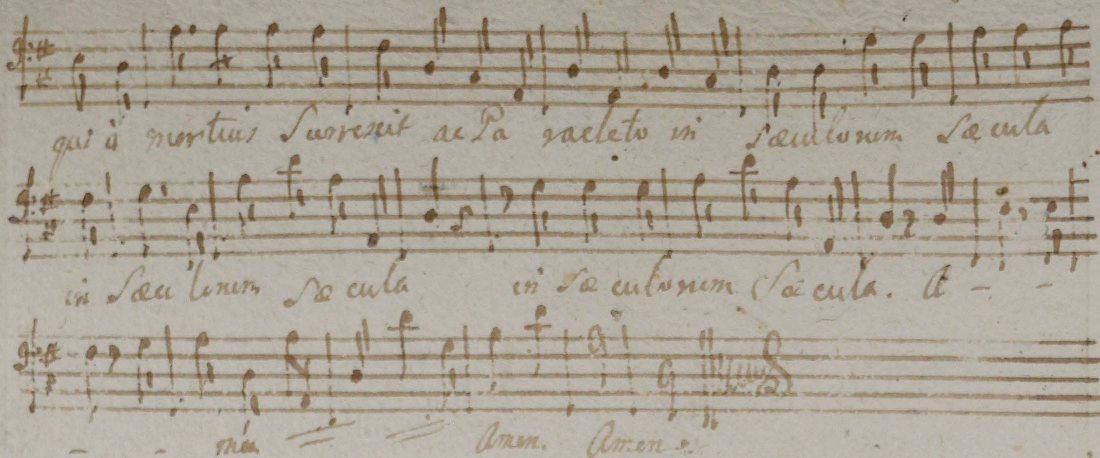 qui à mortuis Surrexit ac Pa racleto in sæculorum sæcula
in sæculorum sæ cula in sæ culorum sæ cula. A - -
- - men Amen. Amen.